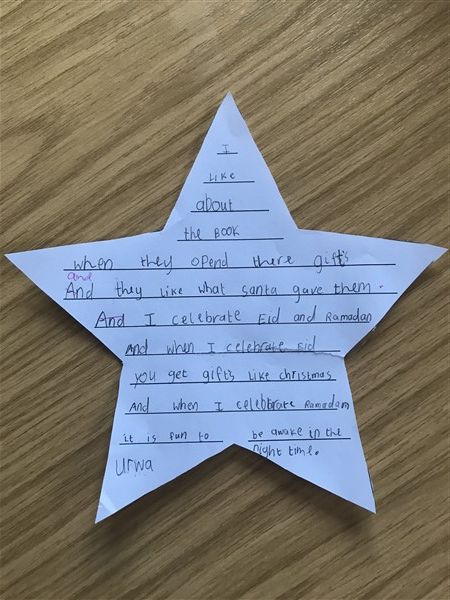 I
Like
about
the BOOK
when they opend there gift's
and
And they like what santa gave them.
And I celebrate Eid and Ramadan
And when I celebrate Eid
you get gift's like christmas
And when I celebrate Ramadam
it is fun to be awake in the
night time.
Urwa